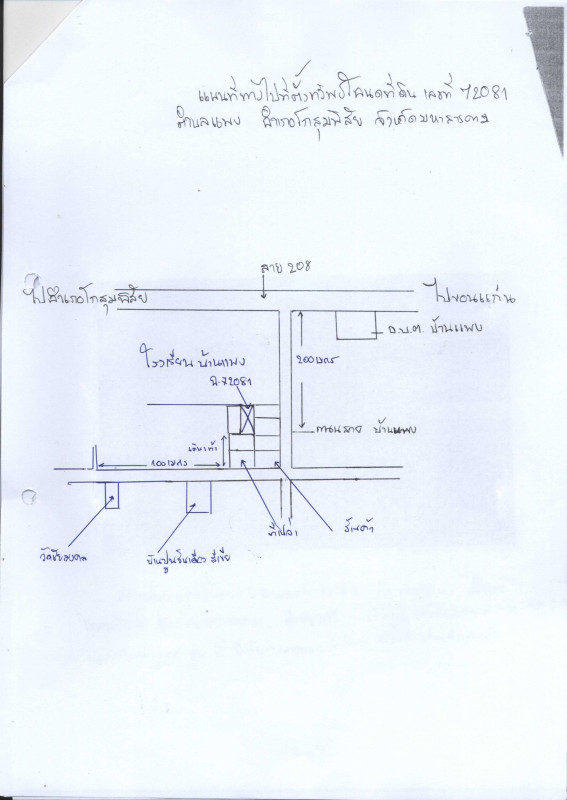 แผนที่ทางไปที่ตั้งทรัพย์โฉนดที่ดิน เลขที่ 72081
ตำบลแพง อำเภอโกสุมพิสัย จังหวัดมหาสารคาม
สาย 208
ไปอำเภอโกสุมพิสัย
ไปขอนแก่น
อ.บ.ต. บ้านแพง
200 เมตร
โรงเรียน บ้านแพง
น.ส. 72081
ถนนสาย บ้านแพง
100 เมตร
ที่เปล่า
ร้านค้า
บ้านปูนชั้นเดียว สีเขียว